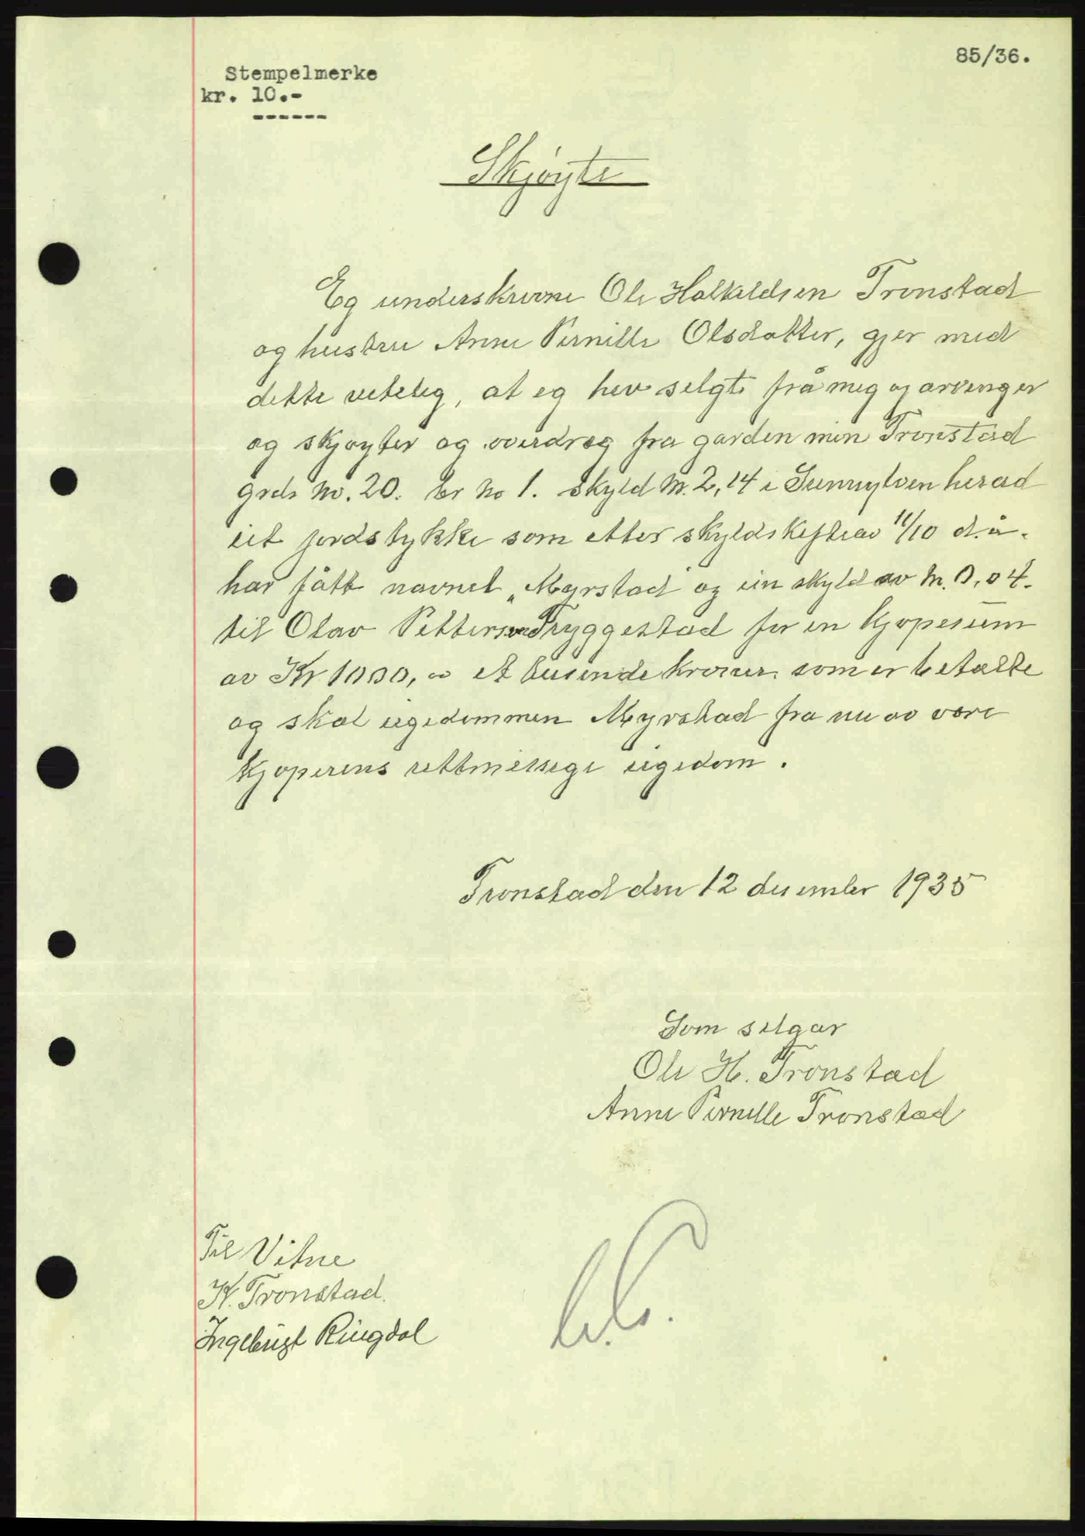 85/36.
Stempelmerke
kr. 10.-
------
Skjøyte
Eg underskrivne Ole Halkildsen Tronstad
og hustru Anne Pernille Olsdatter, gjer med
dette viteleg, at eg hev selgt frå meg og arvinger
og skjøyter og overdreg fra garden min Tronstad
grds No. 20. br No 1. skyld M. 2,14 i Sunnylven herad
eit jordstykke som etter skyldskifte av 11/10 d.å.
har fått navnet „Myrstad" og ein skyld av M. 0,04.
til Olav Pettersen Tryggestad for en kjøpesum
av Kr 1000,00 et tusinde kroner som er betalte
og skal eigedommen Myrstad fra nu av være
kjøperens rettmessige eigedom.
Tronstad den 12 desember 1935
Som selgar
Ole H. Tronstad
Anne Pernille Tronstad
Til Vitne
K. Tronstad.
Ingebrigt Ringdal